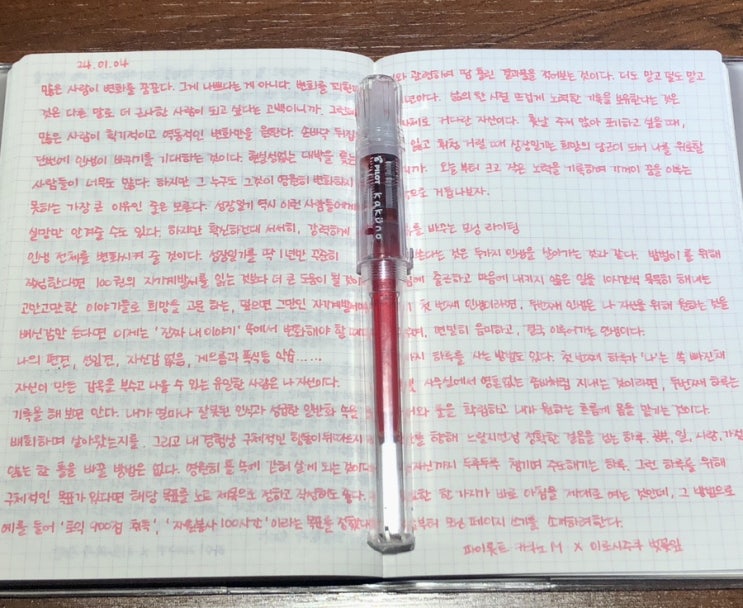 24.01.04
많은 사람이 변화를 꿈꾼다. 그게 나쁘다는 게 아니다. 변화를 꾀한
것은 다른 말로 더 근사한 사람이 되고 싶다는 고백이니까. 그런
많은 사람이 획기적이고 역동적인 변화만을 원한다. 손바닥 뒤집
단번에 인생이 바뀌기를 기대하는 것이다. 현실성없는 대박을 꿈꾸
사람들이 너무도 많다. 하지만 그 누구도 그것이 영원히 변화하지
못하는 가장 큰 이유인 줄은 모른다. 성장일기 역시 이런 사람들에게
실망만 안겨줄 수도 있다. 하지만 확신하건대 서서히, 강력하게
인생 전체를 변화시켜 줄 것이다. 성장일기를 딱 1년만 꾸준히
작성한다면 100권의 자기계발서를 읽는 것보다 더 큰 도움이 될 것이
고만고만한 이야기들로 희망을 고문하는, 덮으면 그만인 자기계발서
배신감만 든다면 이제는 '진짜 내 이야기' 속에서 변화해야 할 때
나의 편견, 선입견, 자신감 없음, 게으름과 폭식등 악습......
자신이 만든 감옥을 부수고 나올 수 있는 유일한 사람은 나 자신이다.
기록을 해 보면 안다. 내가 얼마나 잘못된 인식과 성급한 일반화 속을
배회하며 살아왔는지를. 그리고 내 경험상 구체적인 행동이 뒤따르지
않는 한 틀을 바꿀 방법은 없다. 영원히 틀 속에 갇혀 살게 되는 것이다
구체적인 목표가 있다면 해당 목표를 노트 제목으로 정하고 작성해도 좋다.
예를 들어 '토익 900점 취득', '자원봉사 100시간' 이라는 목표를 정했다
와 관련하여 땀 흘린 결과물을 적어보는 것이다. 더도 말고 덜도 말고
년이다. 삶의 한 시절 뜨겁게 노력한 기록을 보유한다는 것은
자체로 커다란 자산이다. 훗날 주저 앉아 포기하고 싶을 때,
잃고 휘청 거릴 때 성장일기는 희망의 당근이 되어 나를 위로할
니까. 오늘 부터 크고 작은 노력을 기록하며 기꺼이 꿈을 이루는
으로 거듭나보자.
를 바꾸는 모닝 라이팅
쓴다는 것은 두가지 인생을 살아가는 것과 같다. 밥벌이를 위해
께 출근하고 마음에 내키지 않은 일을 10시간씩 묵묵히 해내는
첫 번째 인생이라면, 두번째 인생은 나 자신을 위해 원하는 것을
며, 면밀히 음미하고, 결국 이루어가는 인생이다.
가지 하루를 사는 방법도 있다. 첫 번째 하루가 '나'는 쏙 빠진채
사무실에서 영혼없는 좀비처럼 지내는 것이라면, 두번째 하루는
와 뜻을 확립하고 내가 원하는 흐름에 몸을 맡기는 것이다.
를 향해 느릴지언정 정확한 걸음을 걷는 하루. 공부, 일, 사랑, 가정
자신까지 두루두루 챙기며 주도해가는 하루. 그런 하루를 위해
한 가지가 바로 아침을 제대로 여는 것인데, 그 방법으로
부터 모닝 페이지 쓰기를 소개하려한다.
파이롯트 카쿠노 M X 이로시주쿠 벚꽃잎
PILOT kakuno